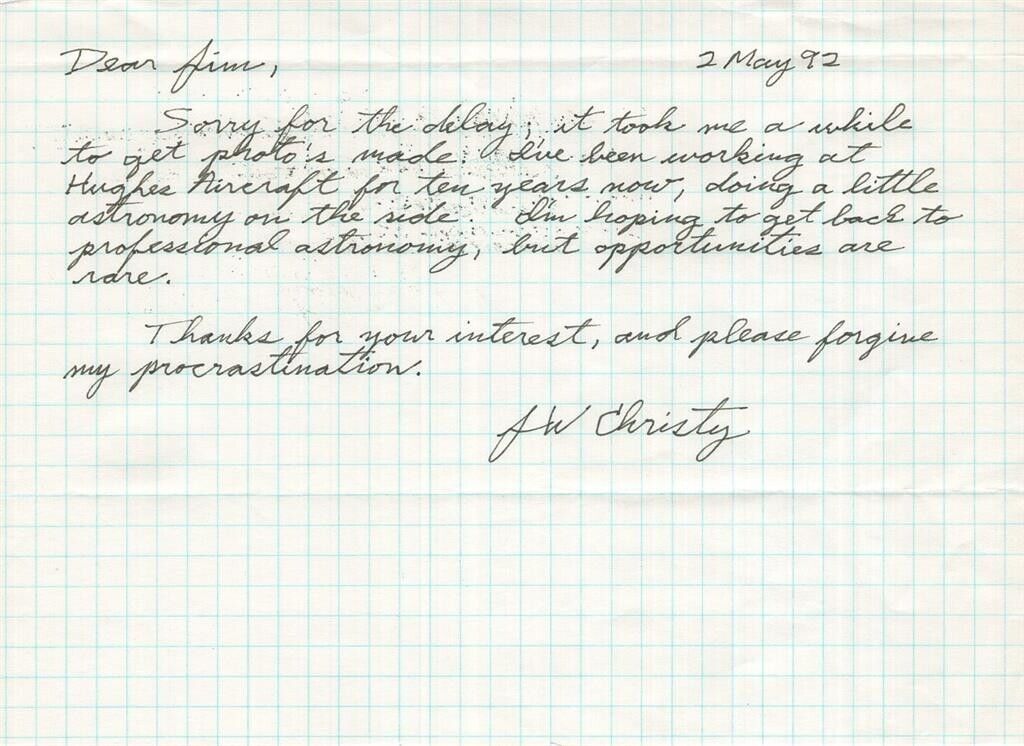 Dear Jim,
2 May 92
Sorry for the delay; it took me a while
to get photo's made. I've been working at
Hughes Aircraft for ten years now, doing a little
astronomy on the side. I'm hoping to get back to
professional astronomy, but opportunities are
rare.
Thanks for your interest, and please forgive
my procrastination.
JW Christy